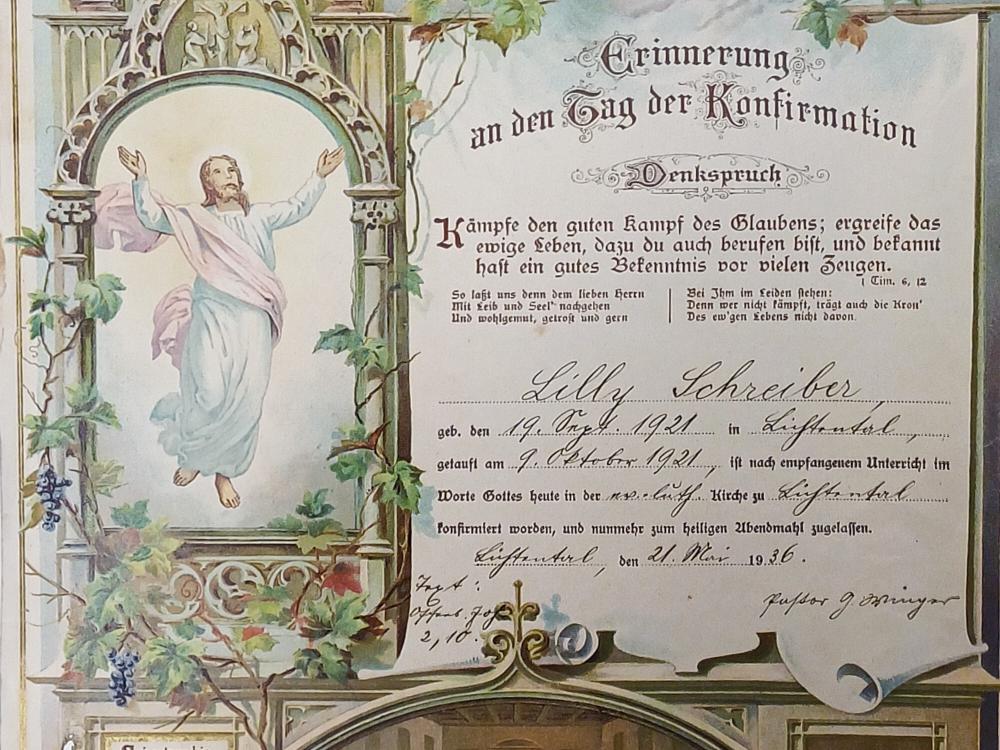 Erinnerung
an den Tag der Konfirmation
Denkspruch
Kämpfe den guten Kampf des Glaubens; ergreife das
ewige Leben, dazu du auch berufen bist, und bekannt
hast ein gutes Bekenntnis vor vielen Zeugen.
1 Tim. 6, 12
So laßt uns denn dem lieben Herrn
Mit Leib und Seel' nachgehen
Und wohlgemut, getrost und gern
Bei Ihm im Leiden stehen:
Denn wer nicht kämpft, trägt auch die Kron'
Des ew'gen Lebens nicht davon.
Lilly Schreiber,
geb. den 19. Sept. 1921 in Lichtental,
getauft am 9. Oktober 1921, ist nach empfangenem Unterricht im
Worte Gottes heute in der ev.-luth. Kirche zu Lichtental
konfirmiert worden, und nunmehr zum heiligen Abendmahl zugelassen.
Lichtental, den 21. Mai 1936.
Text:
Offenb. Joh.
2, 10
Pastor G. Winger